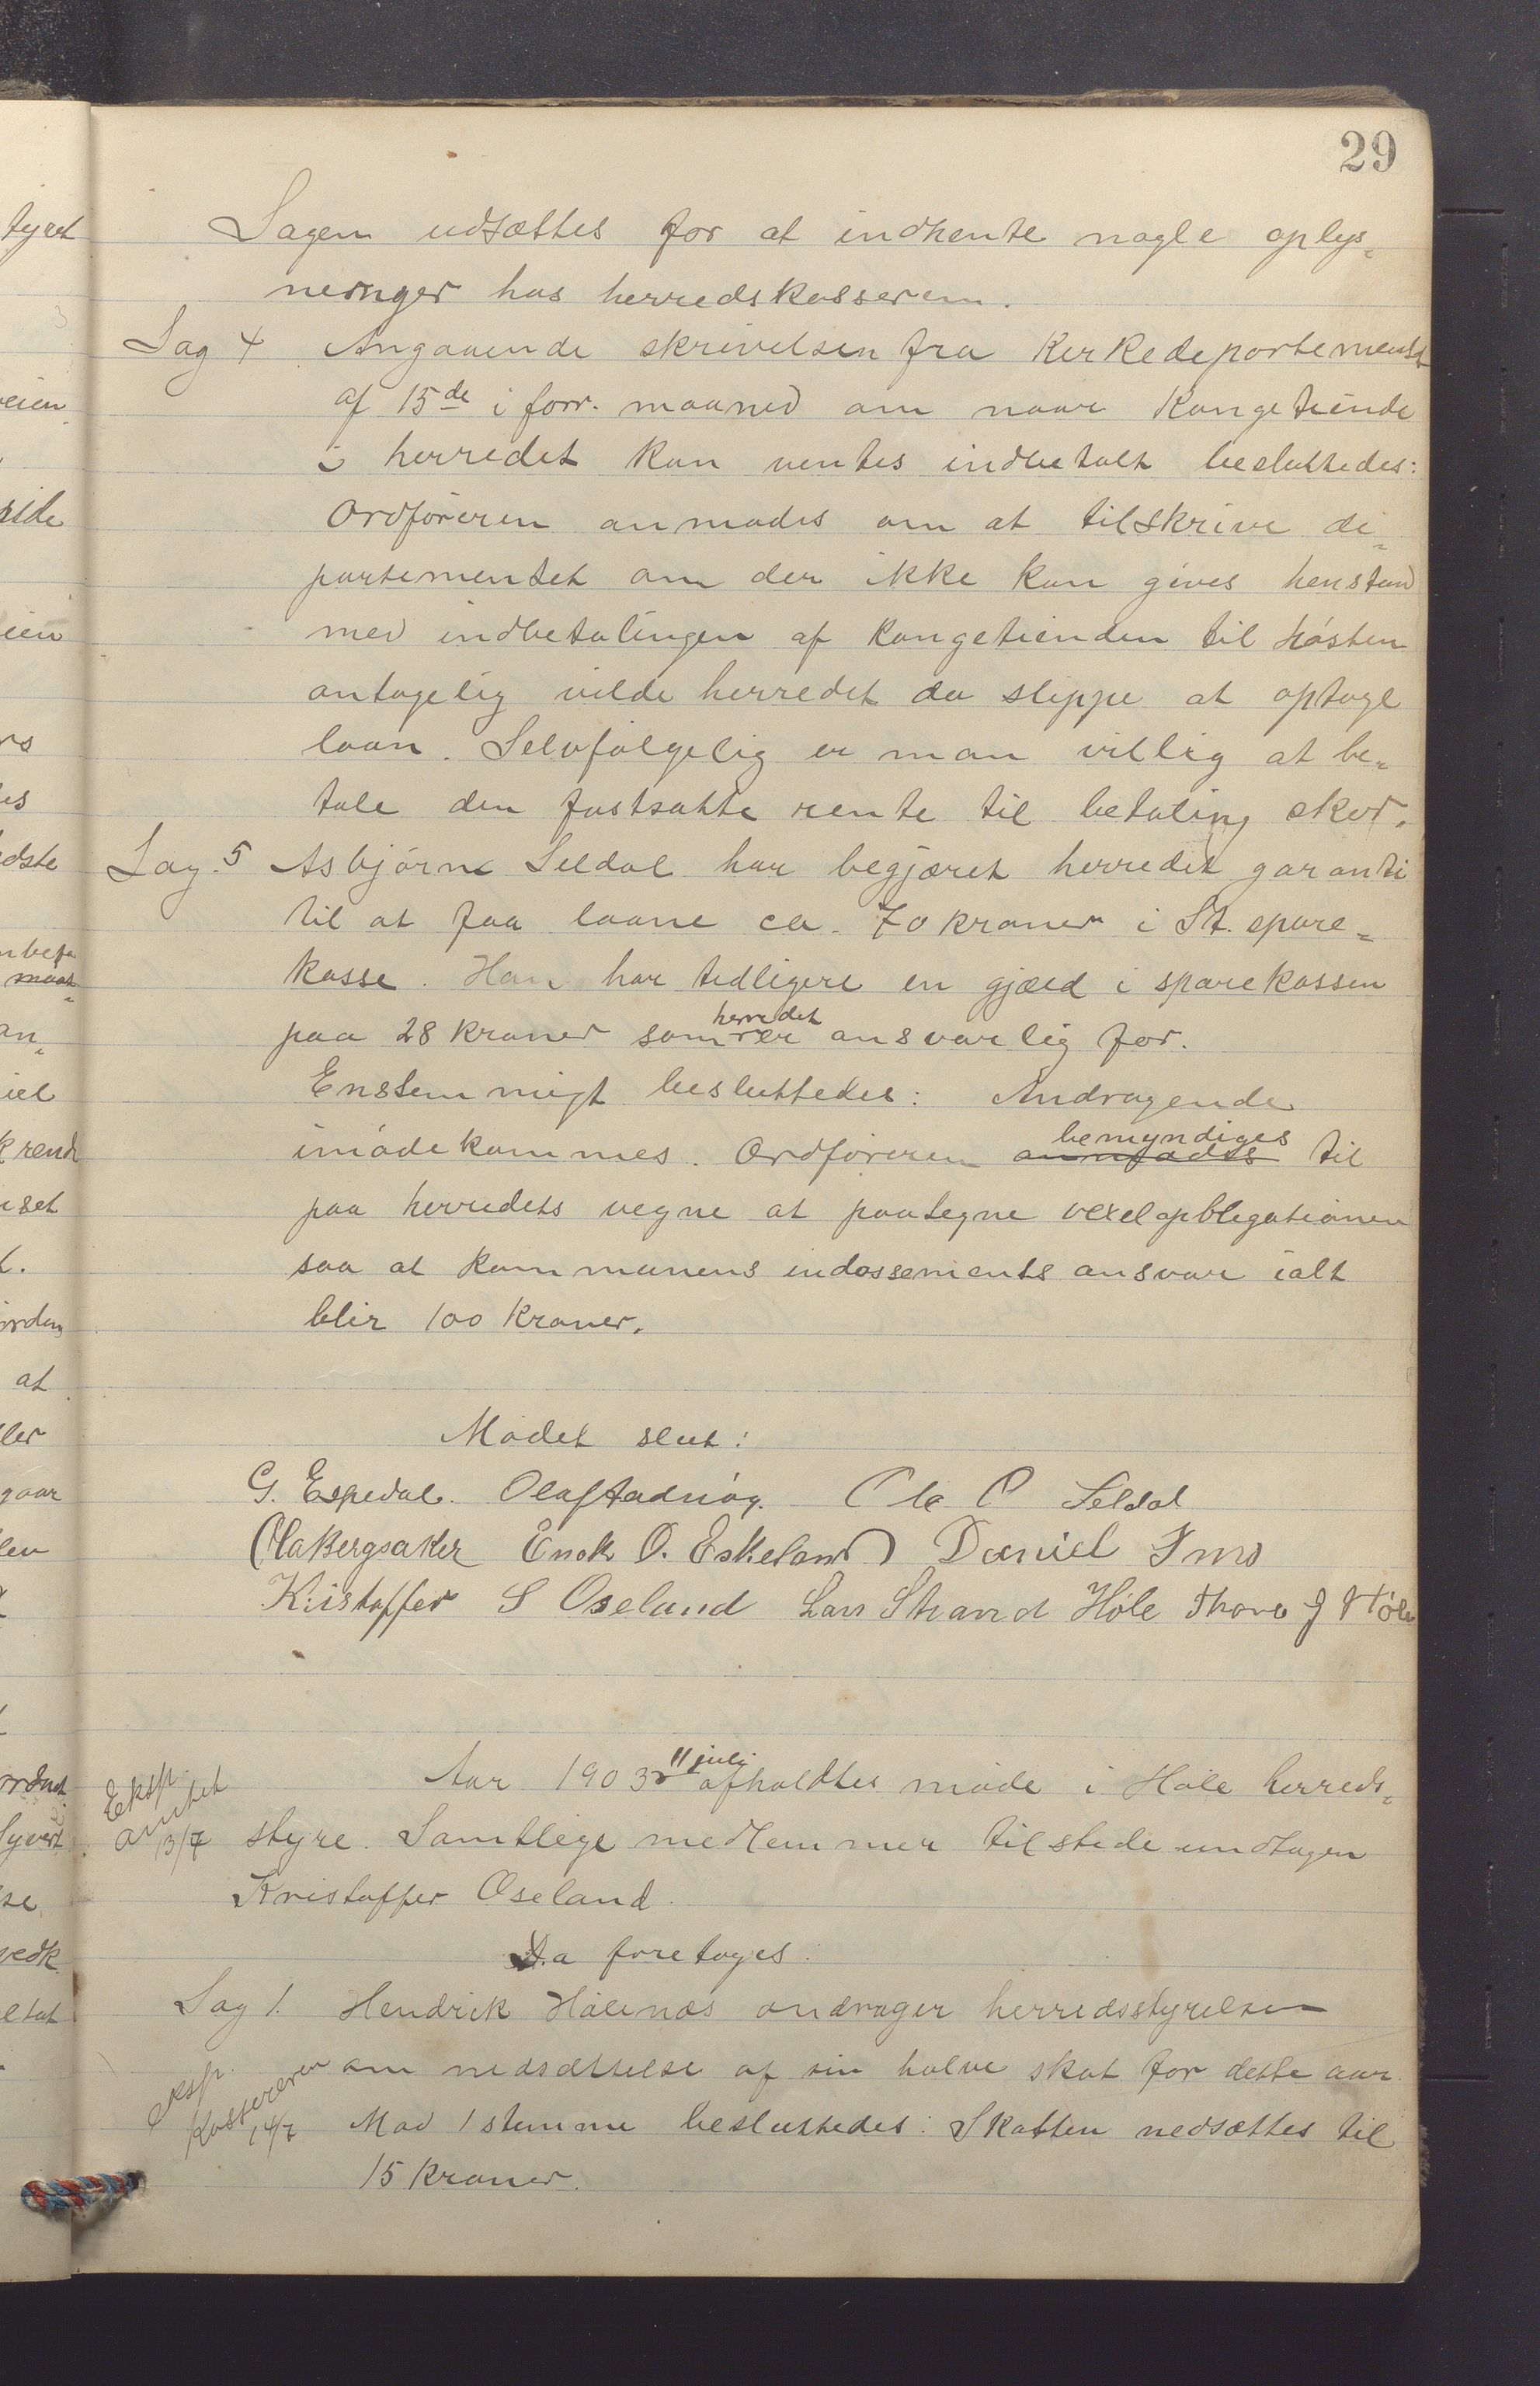 29
Sagen udsættes for at indhente nogle oplys=
ninger hos herredskasseren.
Sag 4 Angaaende skrivelsen fra Kirkedepartementet
af 15de i forr. maaned om naar Kongetiende
i herredet kan ventes indbetalt besluttedes:
Ordføreren anmodes om at tilskrive de=
partementet om der ikke kan gives henstand
med indbetalingen af Kongetienden til høsten
antagelig vilde herredet da slippe at optage
laan. Selvfølgelig er man villig at be=
tale den fastsatte rente til betaling sker.
Sag. 5 Asbjørn Seldal har begjæret herredet garanti
til at faa laane ca. 70 kroner i St. spare=
kasse. Han har tidligere en gjæld i sparekassen
paa 28 kroner som herredet er ansvarlig for.
Enstemmigt besluttedes: Andragende
imødekommes. Ordføreren anmodes bemyndiges til
paa herredets vegne at paategne vexelopbligationen
saa at kommunens indossements ansvar ialt
blir 100 Kroner.
Mødet slut:
G. Espedal. Olaf Stadnøy. Ole O Seldal
Ola Bergsaker Enok O. Eskeland Daniel Ims
Kristoffer S Oseland Lars Strand Høle Thore J Høle
Eksp.
amtet
13/7
Aar 1903 11 juli afholdtes møde i Høle herreds=
styre. Samtlige medlemmer tilstede undtagen
Kristoffer Oseland.
Da foretoges:
Sag 1. Hendrik Hølenæs andrager herredsstyrelsen
om nedsættelse af sin halve skat for dette aar.
Eksp.
Kassereren
14/7
Mod 1 stemme besluttedes: Skatten nedsættes til
15 Kroner.